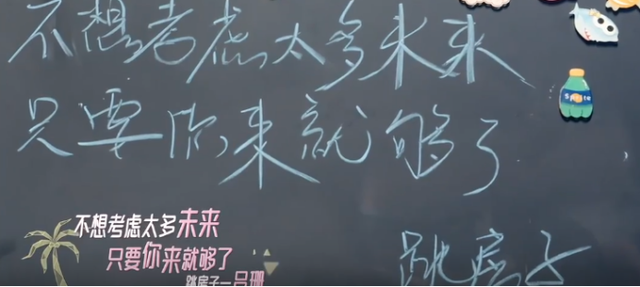 不想考虑太多未来
只要你来就够了
跳房子
不想考虑太多未来
只要你来就够了
跳房子—吕珊